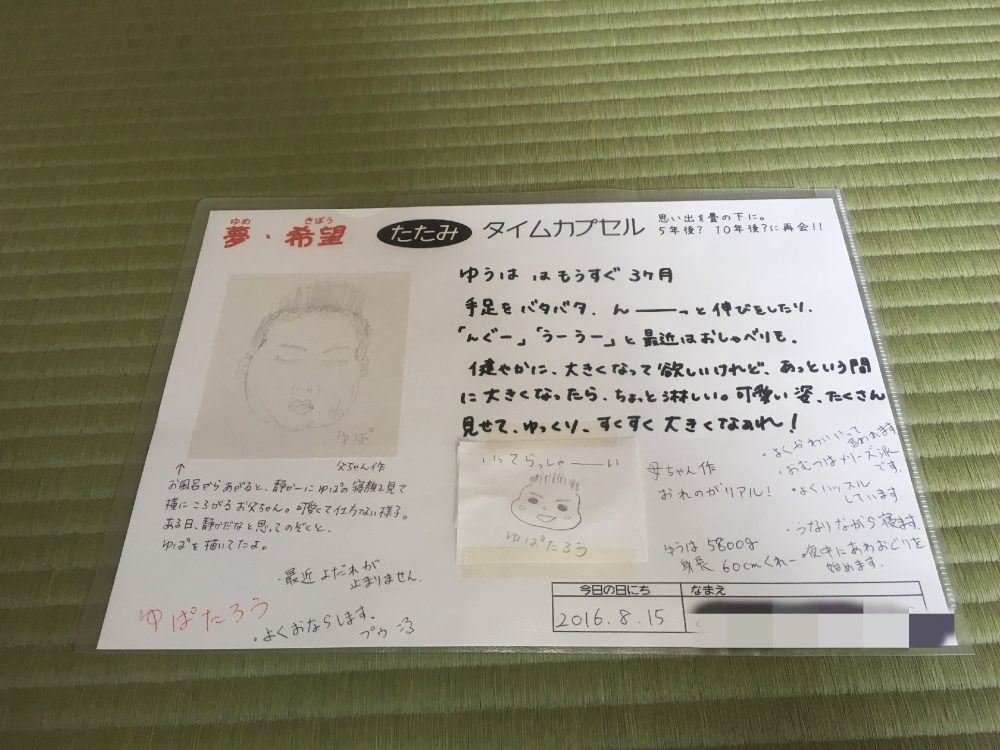 ゆめ きぼう
夢・希望 たたみ タイムカプセル
思い出を畳の下に。
5年後? 10年後?に再会!!
ゆうは はもうすぐ 3ヶ月
手足をバタバタ、んーーーっと伸びをしたり、
「んぐー」「うーうー」と最近はおしゃべりも。
健やかに、大きくなって欲しいけれど、あっという間
に大きくなったら、ちょっと淋しい。可愛い姿、たくさん
見せて、ゆっくり、すくすく大きくなあれ!
ゆぱ
↑ 父ちゃん作
お風呂からあがると、静かーにゆぱの寝顔を見て
横にころがるお父ちゃん。可愛くて仕方ない様子。
ある日、静かだなと思ってのぞくと、
ゆぱを描いてたよ。
・最近よだれが
止まりません。
ゆぱたろう
・よくおならします。
プゥ
いってらっしゃーーい
ゆぱたろう
母ちゃん作
おれのがリアル!
・よくかわいいって
言われます
・おむつはメリーズ派
です。
・よくハッスル
しています
・うなりながら寝ます。
・夜中にあわおどりを
始めます。
ゆうは 5800g
身長 60cmくれー
今日の日にち なまえ
2016.8.15